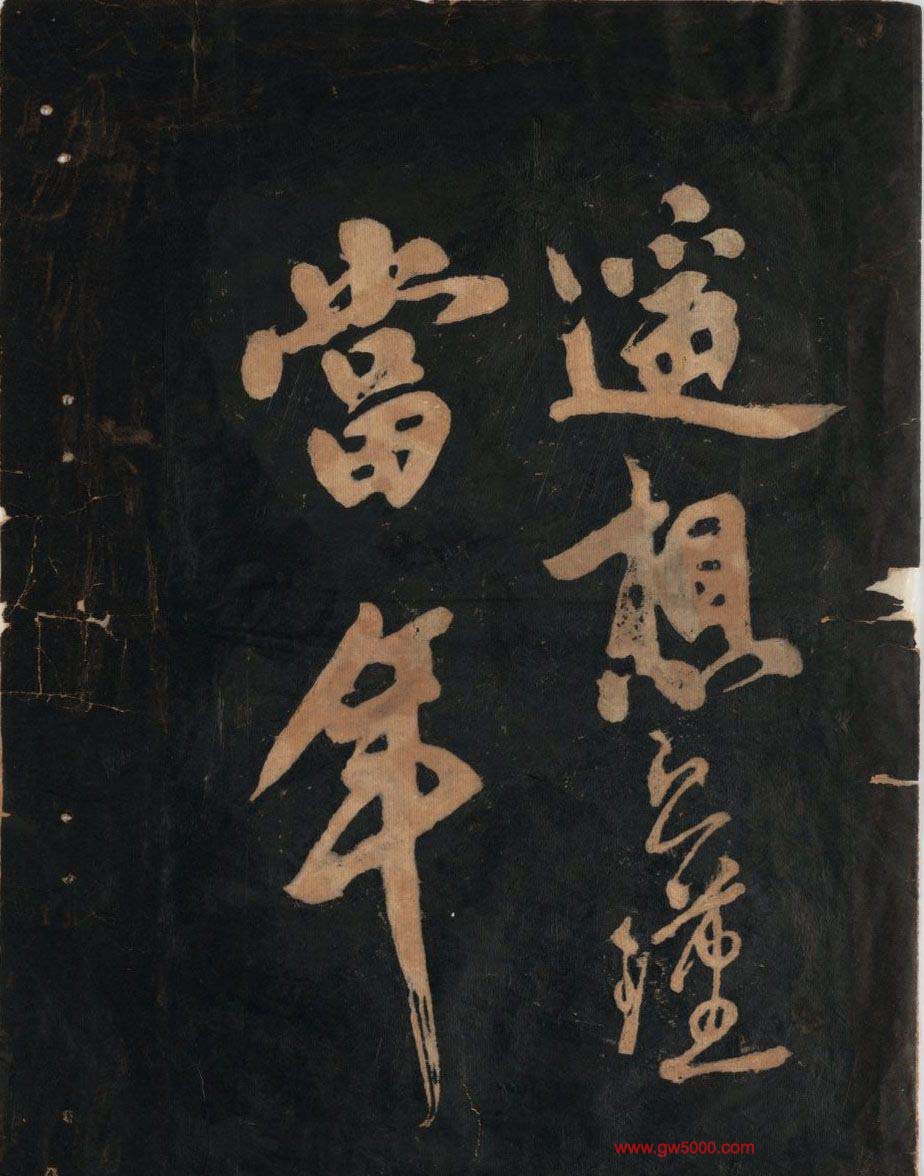 遙想公瑾
當年
www.gw5000.com